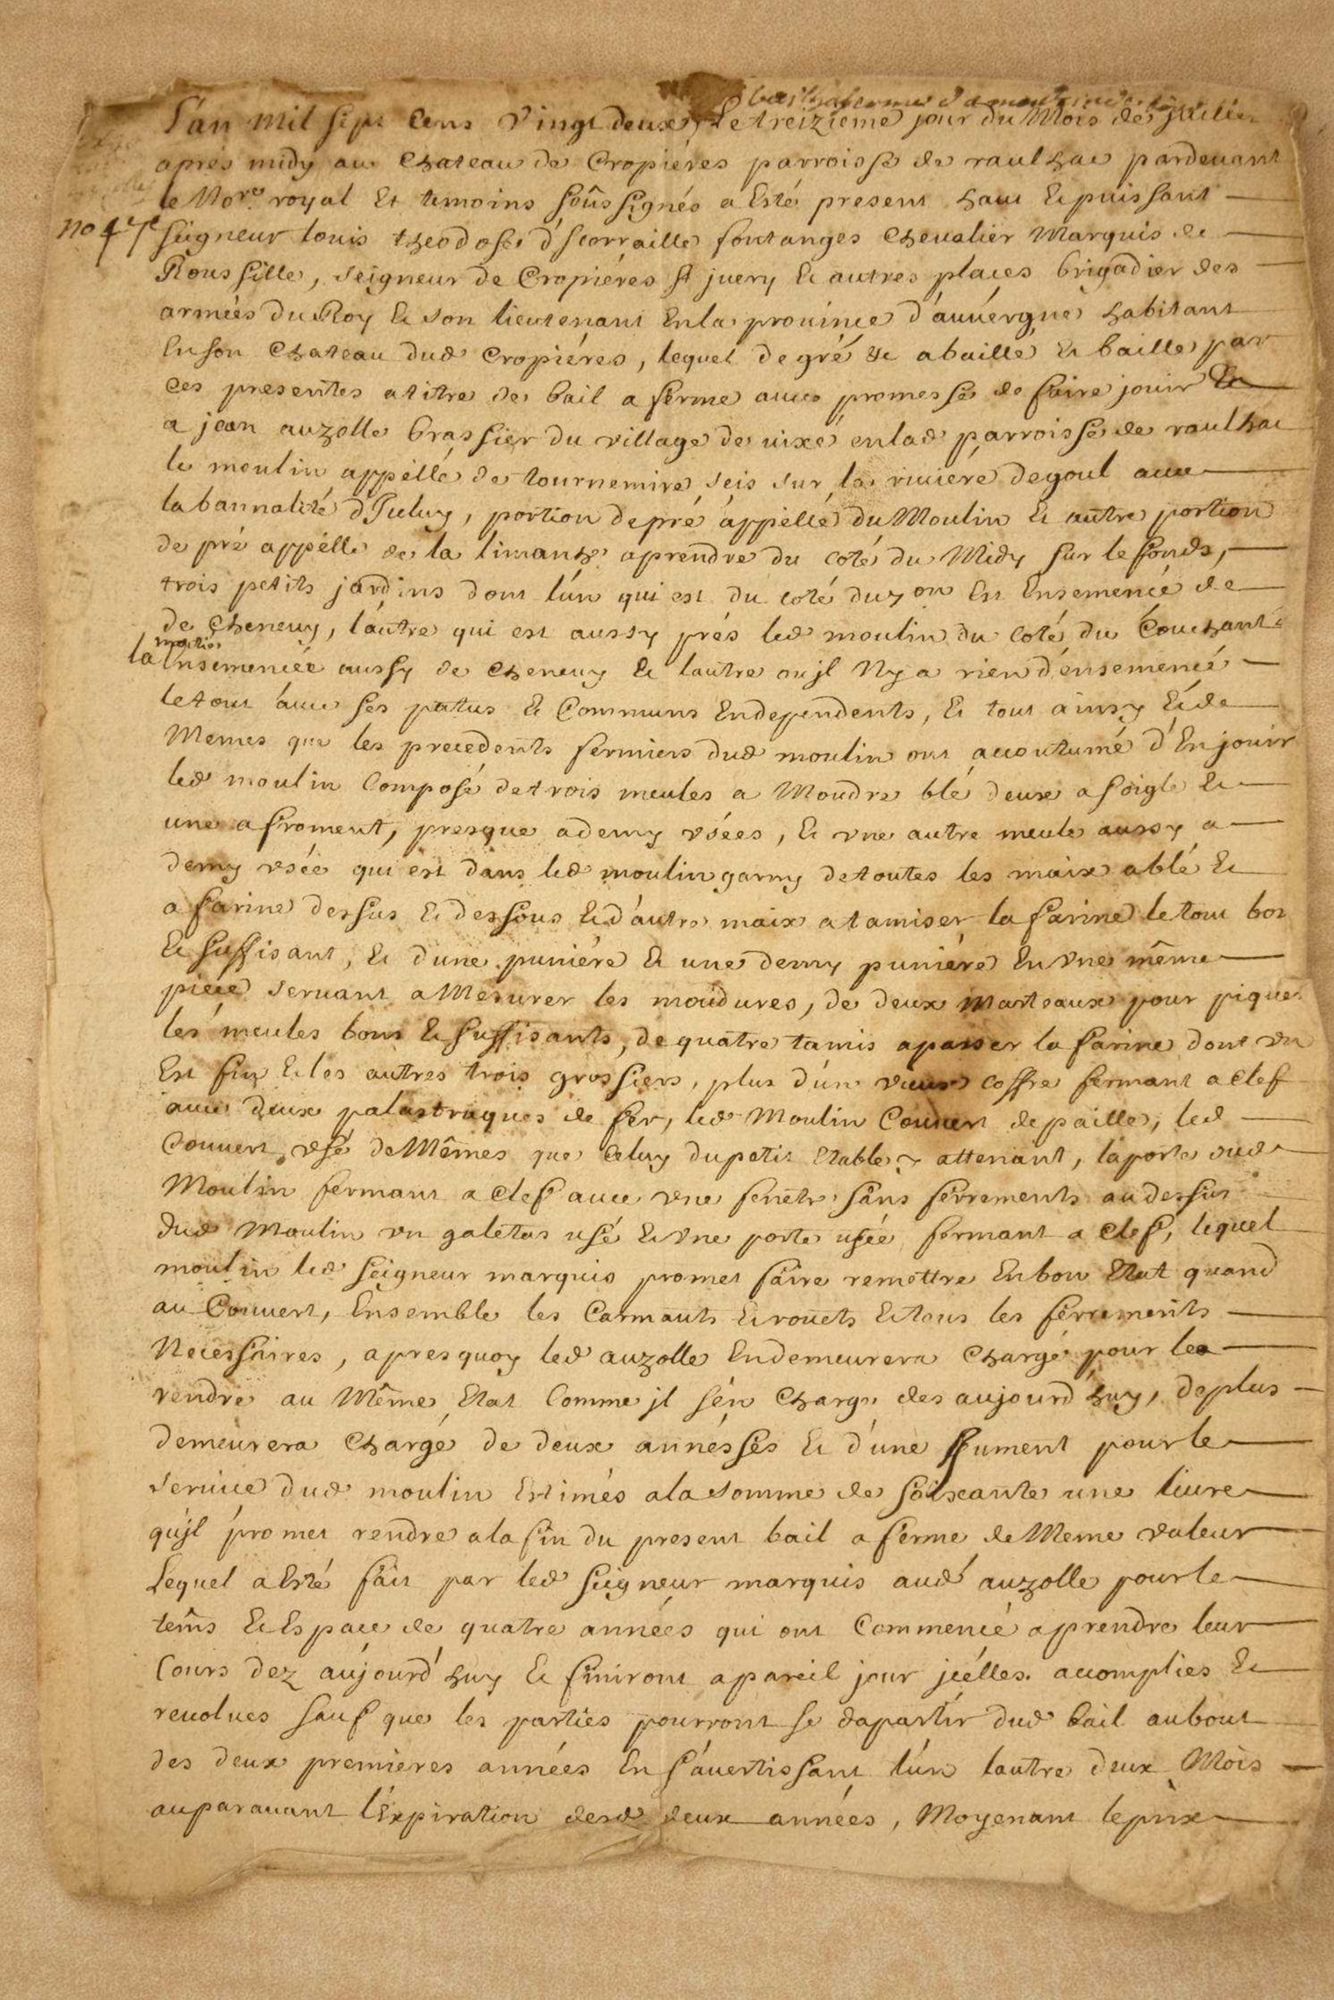 bail a ferme du moulin de
L'an mil sept cens vingt deux, Le treizieme jour du Mois de juillet
apres midy au Chateau de Cropiéres parroisse de raulhac pardevant
le No.re royal Et temoins soûssignés a Esté present haut Et puissant
no 47e
seigneur louis theodose d'scorraille fontanges Chevalier Marquis de
Roussille, seigneur de Cropiéres st juery Et autres places brigadier des
armées du Roy Et son lieutenant En la province d'auvergne habitant
En son Chateau dud Cropiéres, lequel de gré Et a baillé Et baille par
Ces presentes a titre de bail a ferme avec promesse de faire jouir
a jean auzolle brassier du village de vixé en lad parroisse de raulhac
le moulin appéllé de tournemire seis sur la riviere de goul avec
la bannalité d'Iceluy, portion de pré appéllé du Moulin Et autre portion
de pré appéllé de la limanhe a prendre du coté du Midy sur le fonds,
trois petits jardins dont l'ún qui est du coté duzon Est Ensemencé de
de Chenevy, láutre qui est aussy prés led moulin du coté du Couchant
la moitié Ensemencée aussy de Chenevy Et lautre ou jl Ny a rien d'ensemencé
le tout avec ses patus Et Communs Endependents, Et tout ainsy Et de
Memes que les precedents fermiers dud moulin ont acoutumé d'En jouir
led moulin Composé de trois meules a Moudre blé deux a soigle Et
une a froment, presque a demy usées, Et une autre meule aussy a
demy usée qui est dans led moulin garny de toutes les maix a blé Et
a farine dessus Et dessous Et d'autre maix a tamiser la farine le tout bon
Et suffisant, Et d'une puniére Et une demy puniére En Une même
piéce servant a Mesurer les moudures, de deux Marteaux pour piquer
les meules bons Et suffisants, de quatre tamis a passer la farine dont un
Est fin Et les autres trois grossiers, plus d'ún vieux coffre fermant a clef
avec deux palastraques de fer, led Moulin Couvert de paille, led
Couvert usé de Mêmes que Celuy du petit Etable y attenant, la porte dud
Moulin fermant a clef avec une fenétre sans ferrements au dessus
dud Moulin un galetas usé Et Une porte uséé fermant a clef, lequel
moulin led seigneur marquis promet faire remettre En bon Etat quand
au Couvert, Ensemble les Carmants Et rouets Et tous les ferrements
Necessaires, apres quoy led auzolle En demeurera Chargé pour les
rendre au Même Etat Comme jl s'én Charge des aujourd'huy, de plus
demeurera Chargé de deux annésses Et d'une jument pour le
service dud moulin Estimés a la somme de soixante une livre
qu'jl promet rendre a la fin du present bail a ferme de Meme valeur
Lequel a Esté fait par led seigneur marquis aud auzolle pour le
tems Et Espace de quatre années qui ont Commencé a prendre leur
Cours dez aujourd'huy Et finiront a pareil jour jcélles accomplies Et
revolues sauf que les parties pourront se dapartir dud bail au bout
des deux premieres années En s'avertissant l'ún lautre deux Mois
auparavant l'Expiration desd deux années, Moyenant le prix